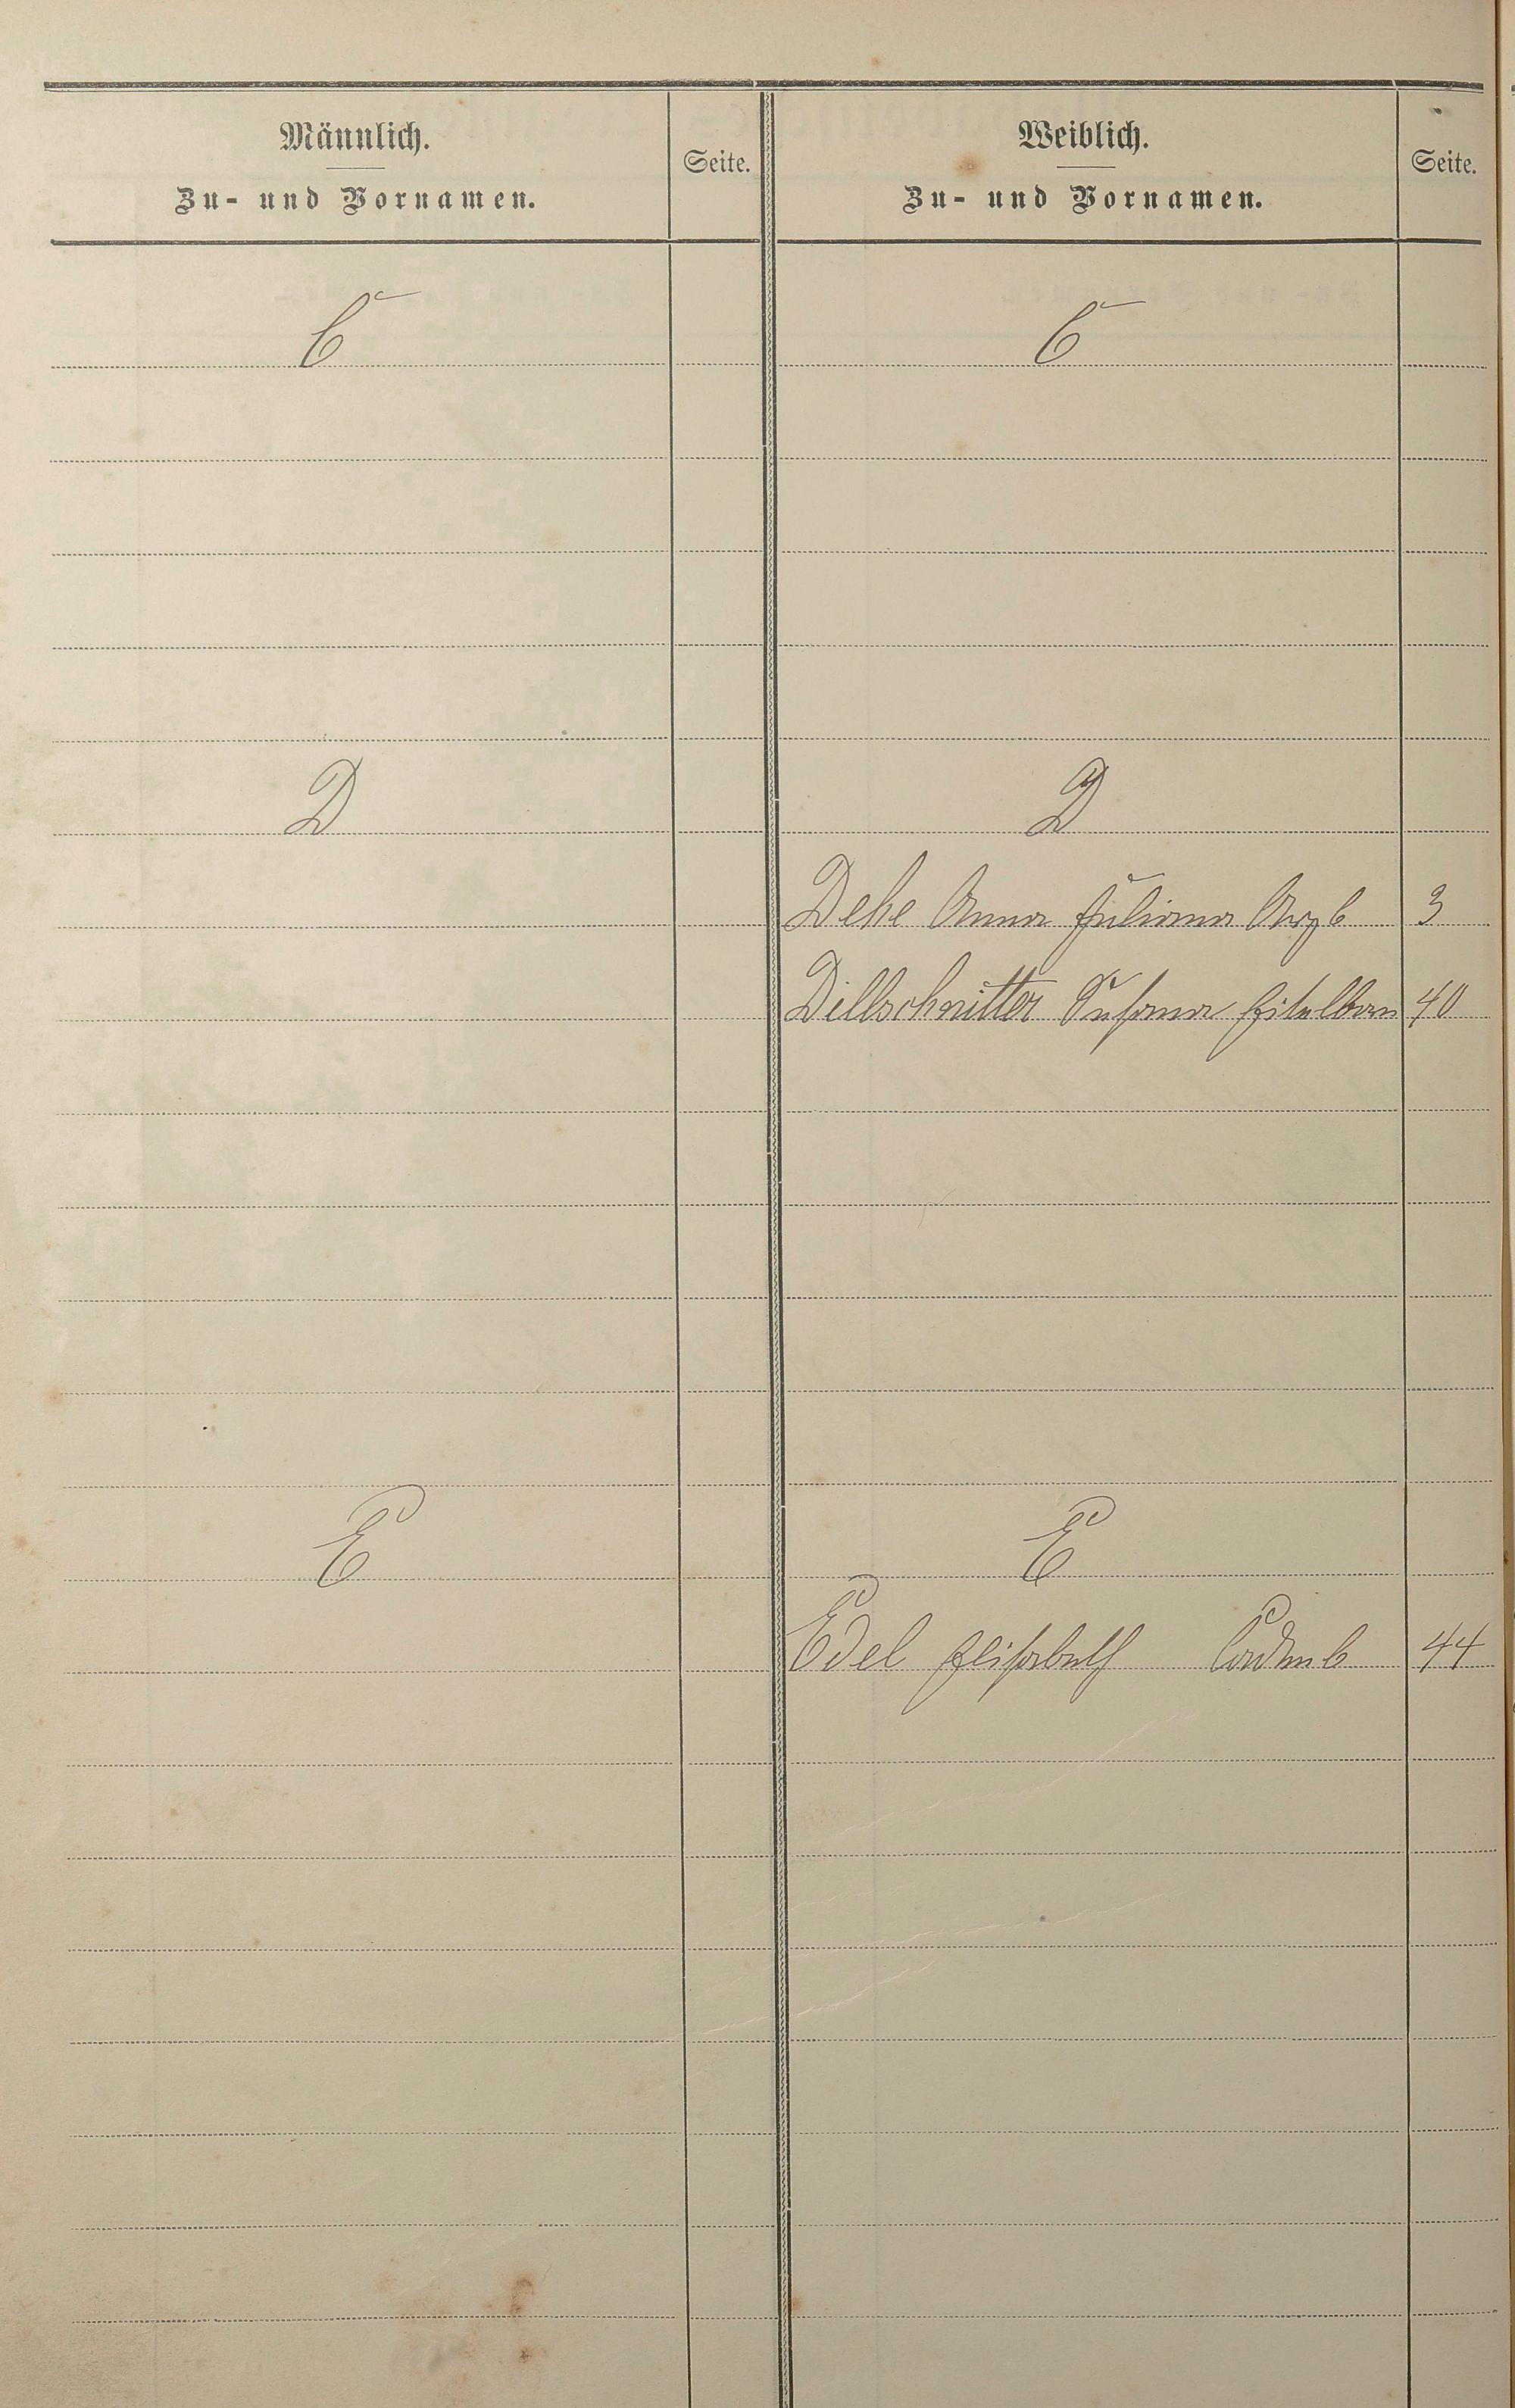 Männlich.
Zu- und Vornamen.
Seite.
Weiblich.
Zu- und Vornamen.
Seite.
C
C
D
D
Dehe Anna Juliana 3
Dillschnitter Susanna 40
E
E
Edel Elisabeth 44